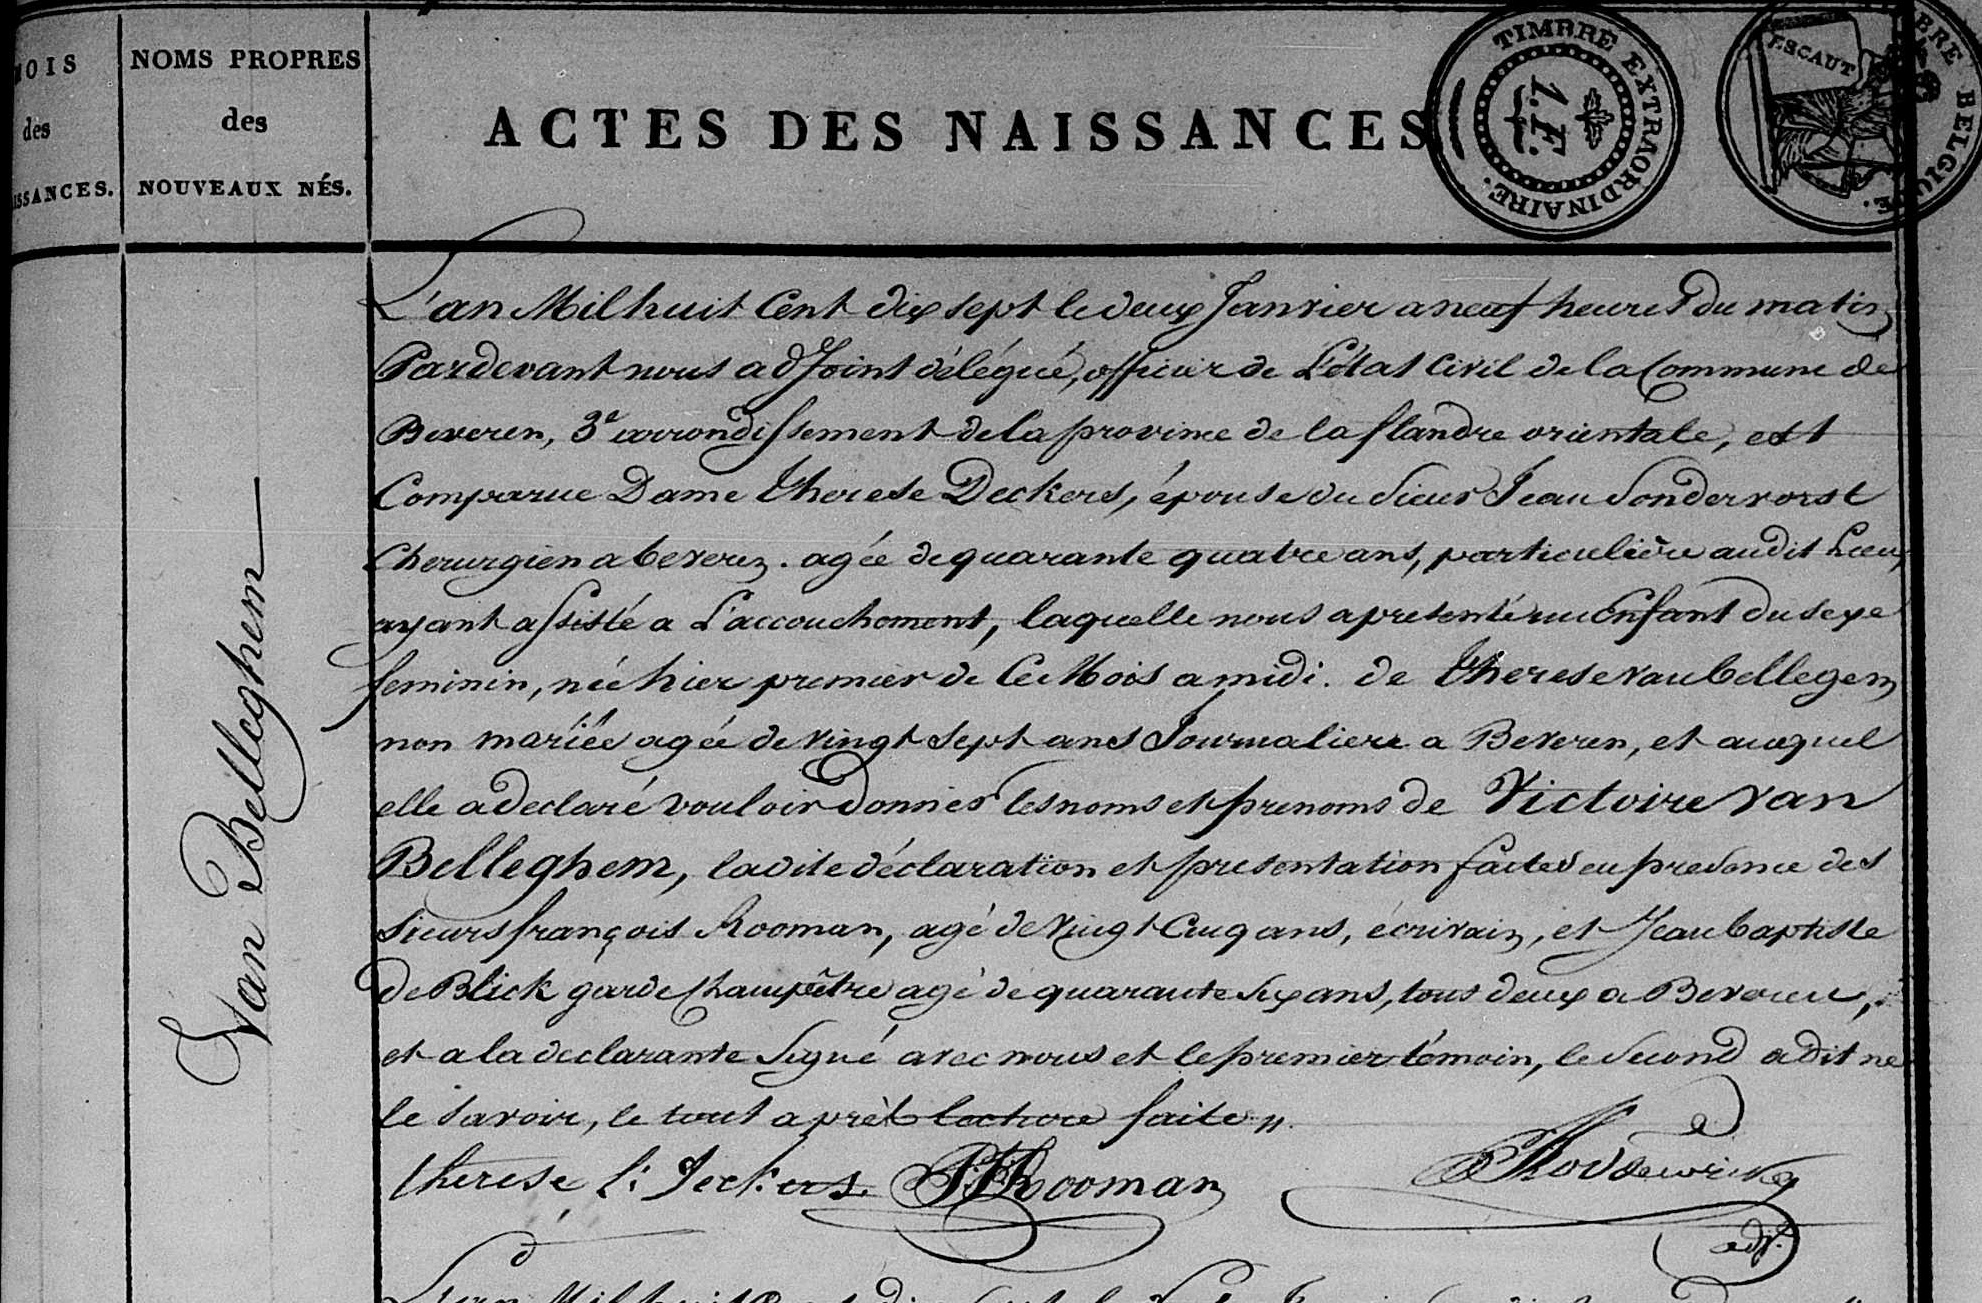 MOIS
des
ISSANCES.
NOMS PROPRES
des
NOUVEAUX NÉS.
ACTES DES NAISSANCES
TIMBRE EXTRAORDINAIRE.
1.F.
ESCAUT
TIMBRE BELGIQUE.
Van Belleghem
L'an Mil huit Cent dix sept le deux Janvier a neuf heures du matin
Pardevant nous adJoint délégué, officier de L'état Civil de la Commune de
Beveren, 3e arrondissement de la province de la flandre orientale, est
Comparue Dame therese Deckers, épouse du Sieur Jean Sondervorst
Cherurgien a beveren. agée de quarante quatre ans, particulière audit Lieu,
ayant assisté a L'accouchement, laquelle nous a presenté un Enfant du sexe
feminin, née hier premier de Ce Mois a midi. de therese van bellegem
non mariée agée de vingt sept ans Journaliere a Beveren, et auquel
elle a declaré vouloir donner les noms et prenoms de Victoire van
Belleghem, ladite déclaration et presentation faites en presence des
Sieurs françois Rooman, agé de vingt Cinq ans, écrivain, et Jean baptiste
de Blick garde Champêtre agé de quarante Six ans, tous deux a Beveren,
et a la declarante Signé avec nous et le premier témoin, le Second a dit ne
le Savoir, le tout aprèt lecture faite.,,
therese Deckers. Rooman
adj.
L'an Mil huit Cent dix sept le